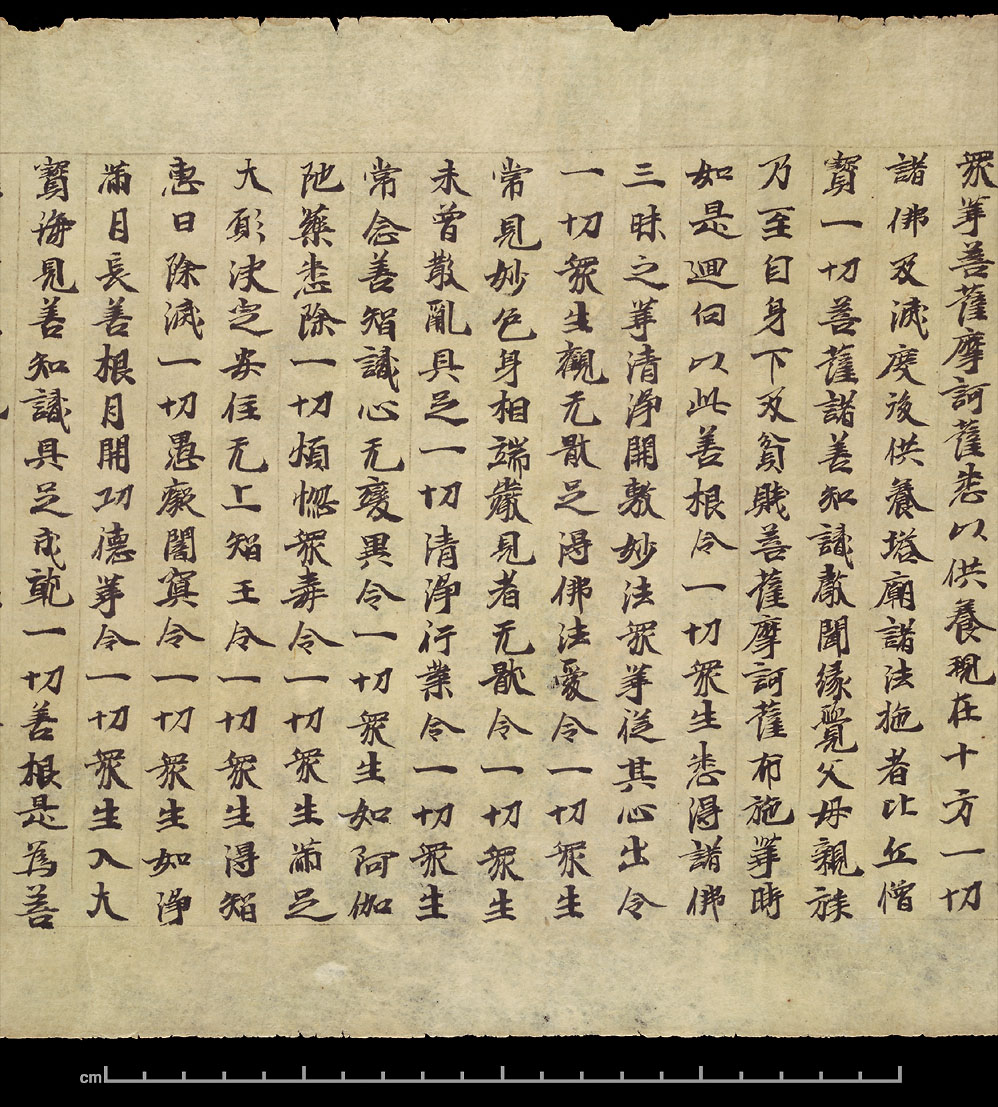 衆華菩薩摩訶薩悉以供養現在十方一切
諸佛及滅度後供養塔廟諸法施者比丘僧
寶一切菩薩諸善知識聲聞緣覺父母親族
乃至自身下及貧賤菩薩摩訶薩布施華時
如是迴向以此善根令一切衆生悉得諸佛
三昧之華清淨開敷妙法衆華從其心出令
一切衆生觀无猒足得佛法愛令一切衆生
常見妙色身相端嚴見者无猒令一切衆生
未曾散亂具足一切清淨行業令一切衆生
常念善知識心无變異令一切衆生如阿伽
陁藥悉除一切煩惱衆毒令一切衆生滿足
大願決定安住无上智王令一切衆生得智
惠日除滅一切愚癡闇冥令一切衆生如淨
滿月長善根月開功德華令一切衆生入大
寶海見善知識具足成就一切善根是為善